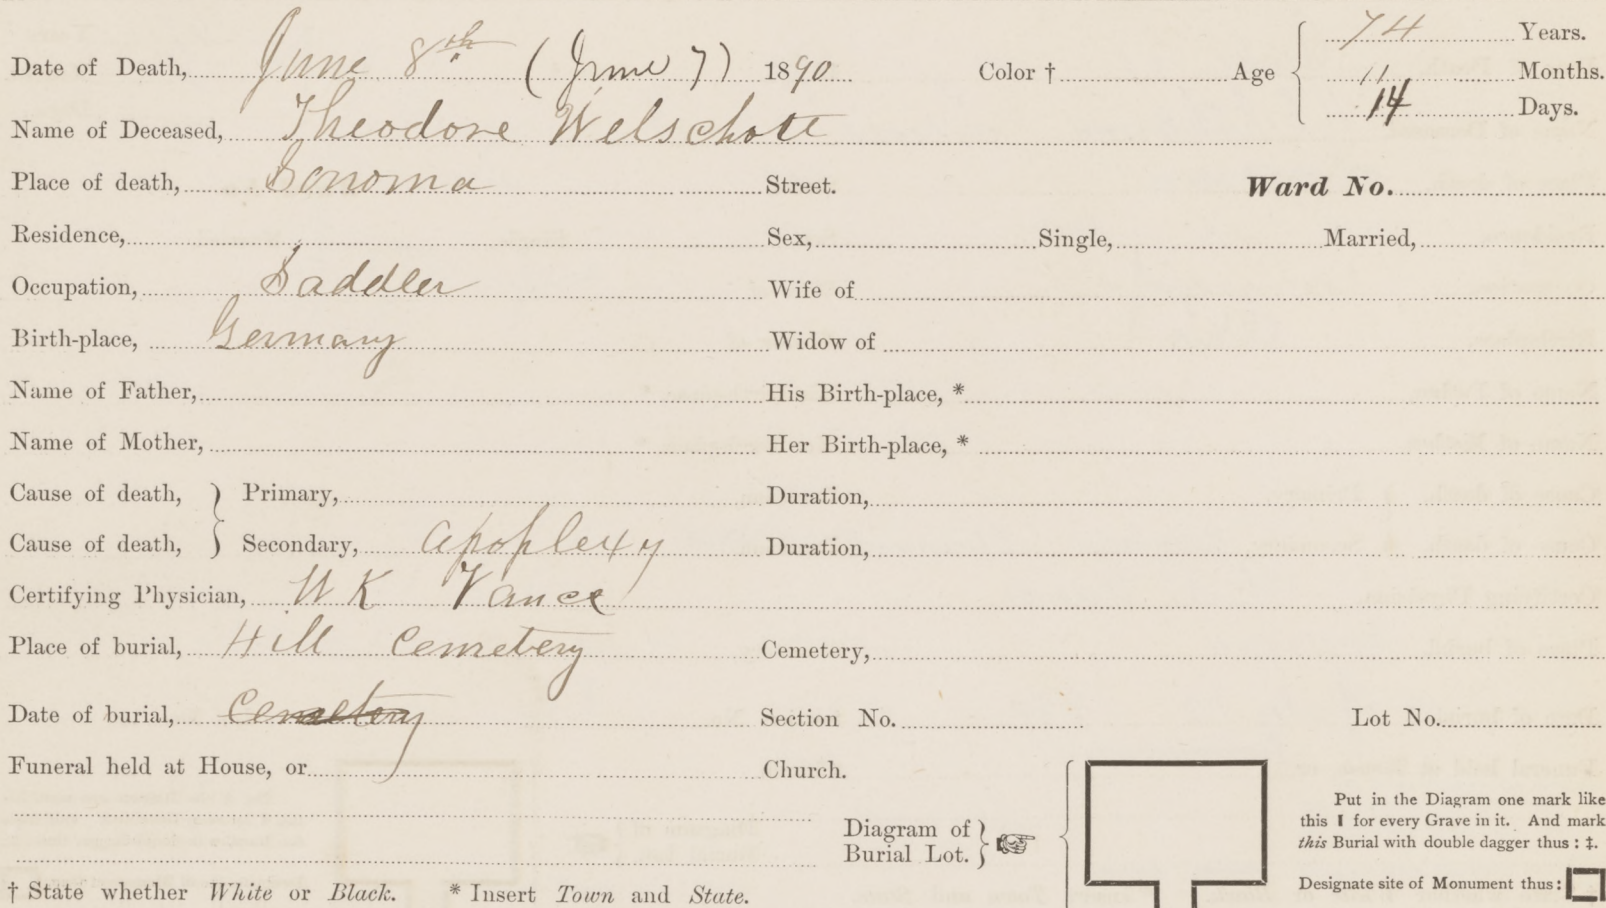 Date of Death, June 8th (June 7) 1890 Color † Age 74 Years.
11 Months.
14 Days.
Name of Deceased, Theodore Welschott
Place of death, Sonoma Street. Ward No.
Residence, Sex, Single, Married,
Occupation, Saddler Wife of
Birth-place, Germany Widow of
Name of Father, His Birth-place, *
Name of Mother, Her Birth-place, *
Cause of death, Primary, Duration,
Cause of death, Secondary, Apoplexy Duration,
Certifying Physician, W K Vance
Place of burial, Hill Cemetery Cemetery,
Date of burial, Cemetery Section No. Lot No.
Funeral held at House, or Church.
Put in the Diagram one mark like
this I for every Grave in it. And mark
this Burial with double dagger thus : ‡.
Diagram of
Burial Lot.
Designate site of Monument thus :
† State whether White or Black. * Insert Town and State.